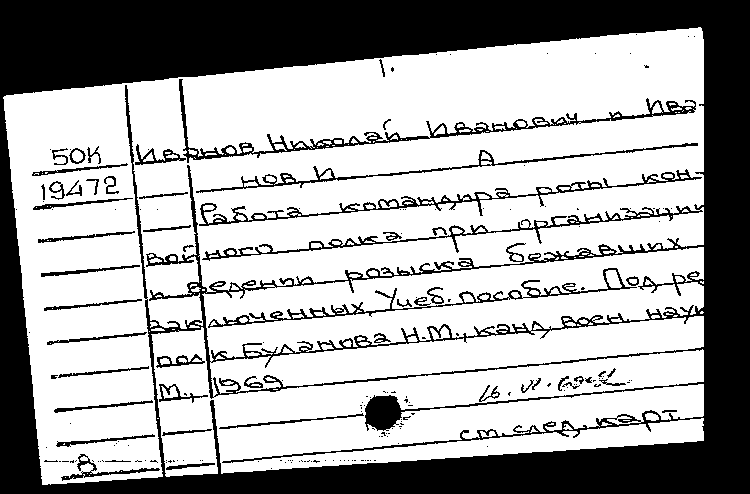 1.
50К Иванов, Николай Иванович и Ива-
19472 нов, И А
Работа командира роты кон-
войного полка при организации
и ведении розыска бежавших
заключенных. Учеб. пособие. Под ре
полк Буланова Н.М., канд. воен. наук
М., 1969
см. след. карт
8